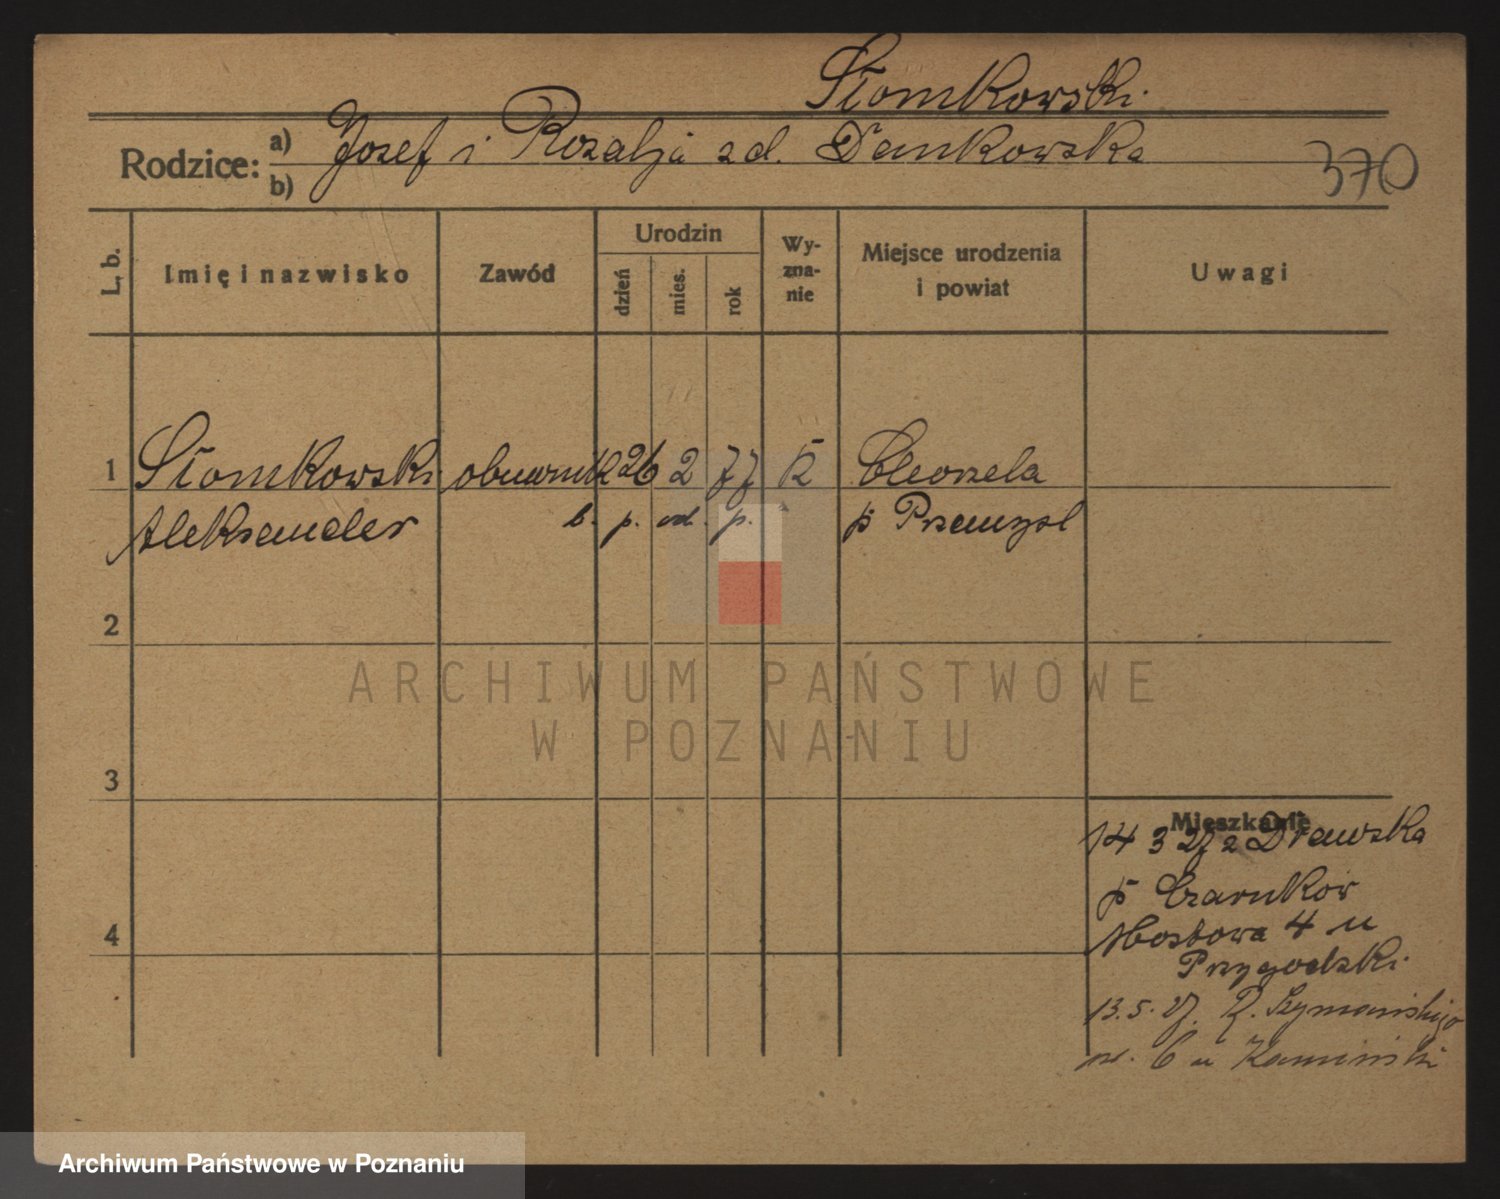 Słomkowski
Rodzice: a) Josef i Rozalja z d. Dankowska
b)
370
L. b.
Imię i nazwisko
Zawód
Urodzin
dzień
mies.
rok
Wy-
zna-
nie
Miejsce urodzenia
i powiat
Uwagi
1 Słomkowski obuwnik 26 2 77 k
Aleksander b. p. od. p. p Przemysl
2
3
4
Mieszkanie
14 3 27 z Drawska
p Czarnków
Mostowa 4 u
Przygodzki
13.5.27. R. Szymańskiego
nr. 6 u Kamiński
ARCHIWUM PAŃSTWOWE
W POZNANIU
Archiwum Państwowe w Poznaniu